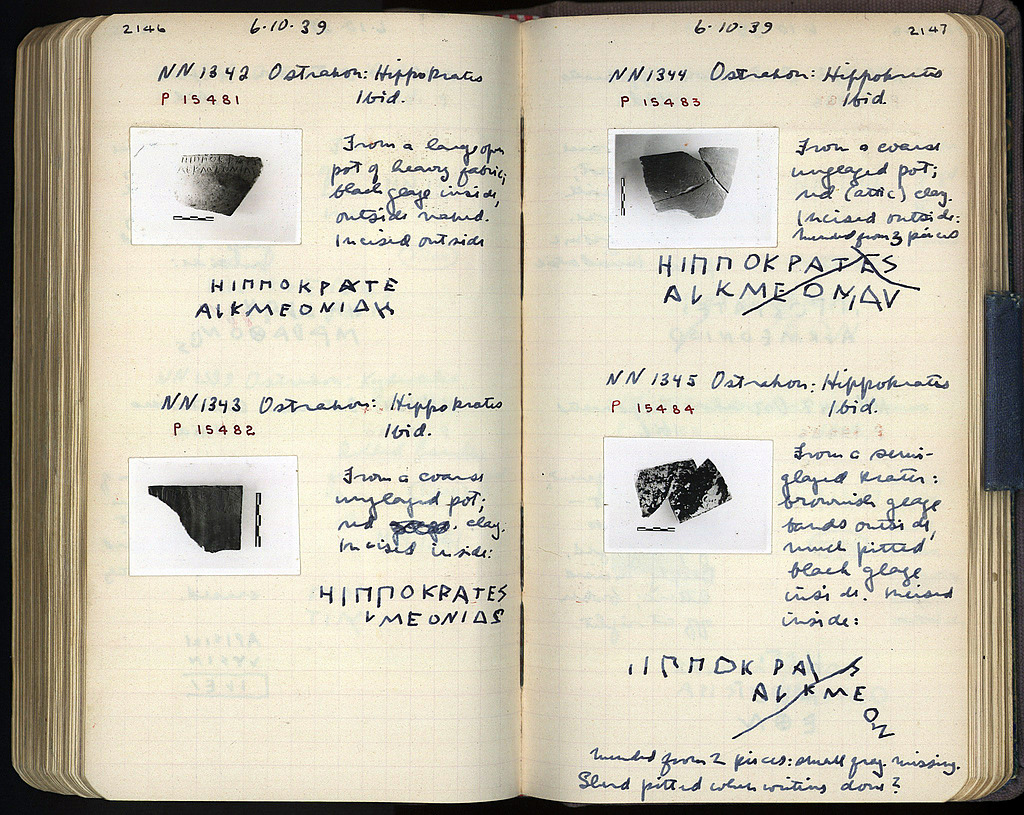 2146
6·10·39
NN 1342 Ostrakon: Hippokrates
P 15481
Ibid.
From a large open
pot of heavy fabric;
black glaze inside,
outside
Incised outside
ΗΙΠΠΟΚΡΑΤΕ
ΑΙΚΜΕΟΝΙΔ
NN 1343 Ostrakon: Hippokrates
P 15482
Ibid.
From a coarse
unglazed pot;
red clay.
Incised inside:
ΗΙΠΠΟΚΡΑΤΕS
VΜΕΟΝΙΔS
6·10·39
2147
NN 1344 Ostrakon: Hippokrates
P 15483
Ibid.
From a coarse
unglazed pot;
red (attic) clay.
Incised outside:
Mended from 3 pieces
ΗΙΠΠΟΚΡΑΤΕS
ΑVΚΜΕΟΝΙΔV
NN 1345 Ostrakon: Hippokrates
P 15484
Ibid.
From a semi-
glazed krater:
brownish glaze
bands outside,
much pitted
black glaze
inside. Incised
inside:
ΙΙΠΠΟΚ ΡΑ\ S
ΑVΚΜΕ
ΟΝ
Mended from 2 pieces: small frag. missing.
Sherd pitted when writing done?